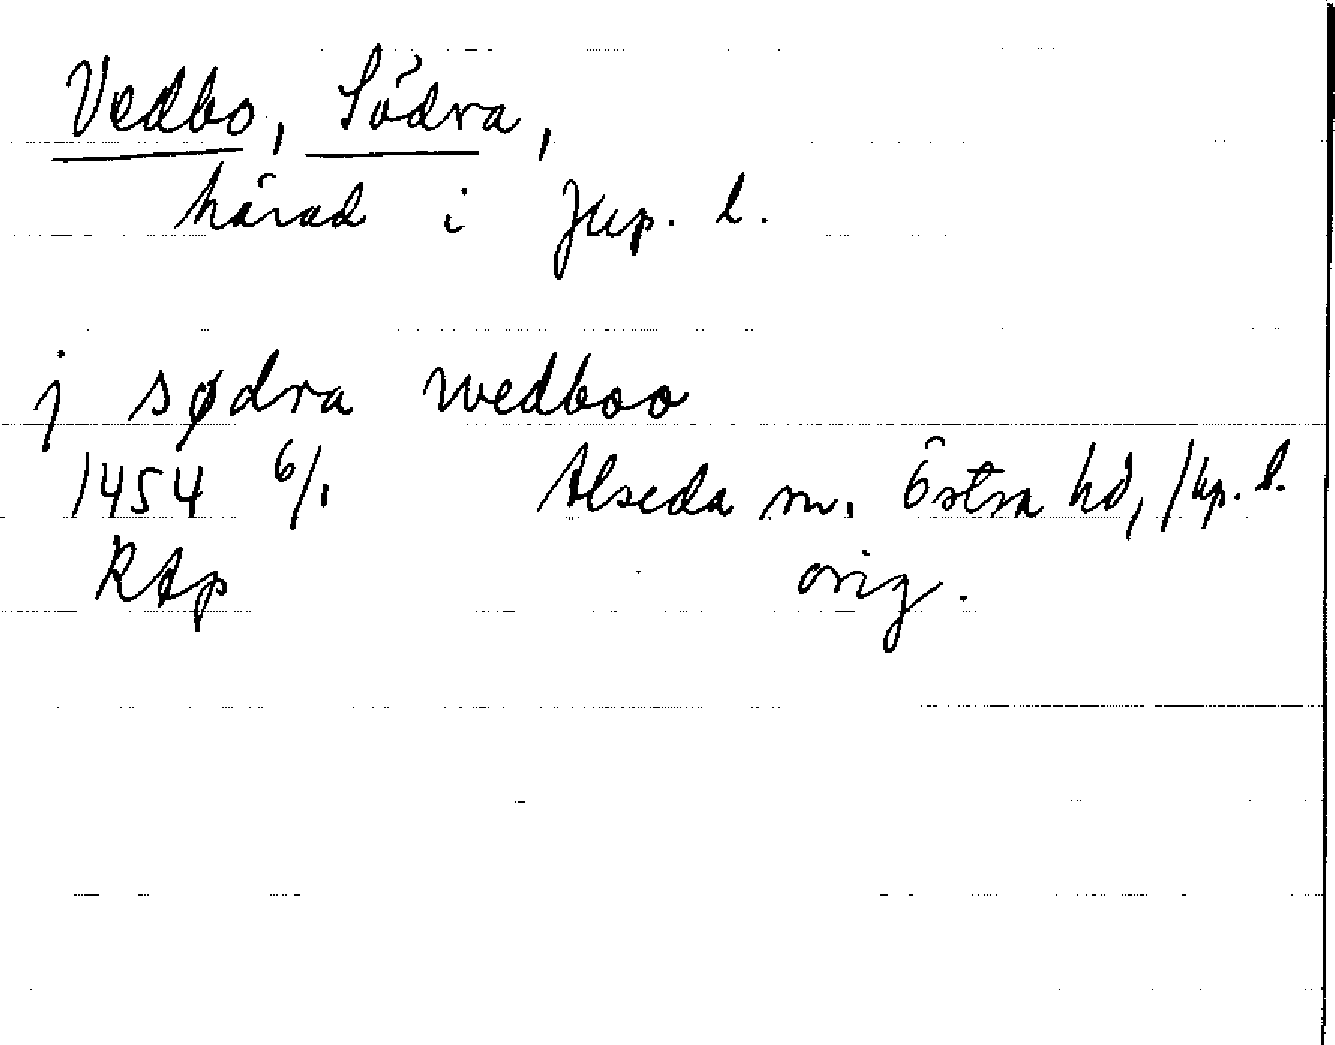 Vedbo, Södra,
härad i Jkp. l.
j sødra wedboo
1454 6/1 Alseda sn. Östra hd, Jkp. l.
RAp orig.